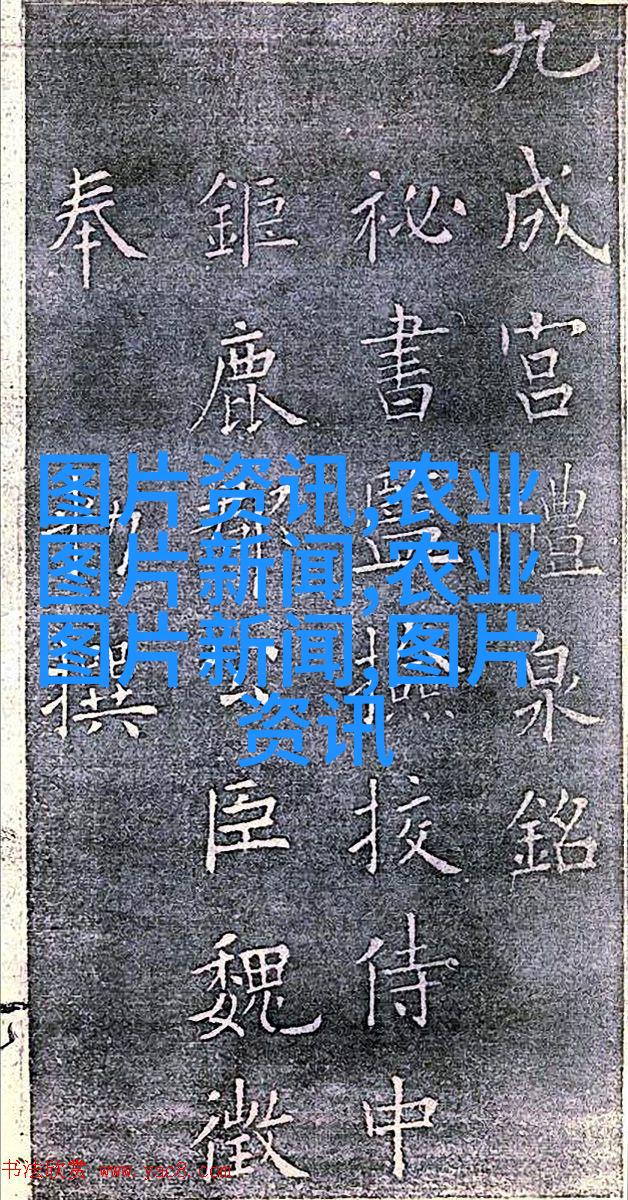 九成宮醴泉銘
祕書監撿挍侍中
鉅鹿郡公臣魏徵
奉
勅撰
图片资讯,农业
图片新闻,农业
图片新闻,图片
资讯
书法欣赏 www.yac8.com